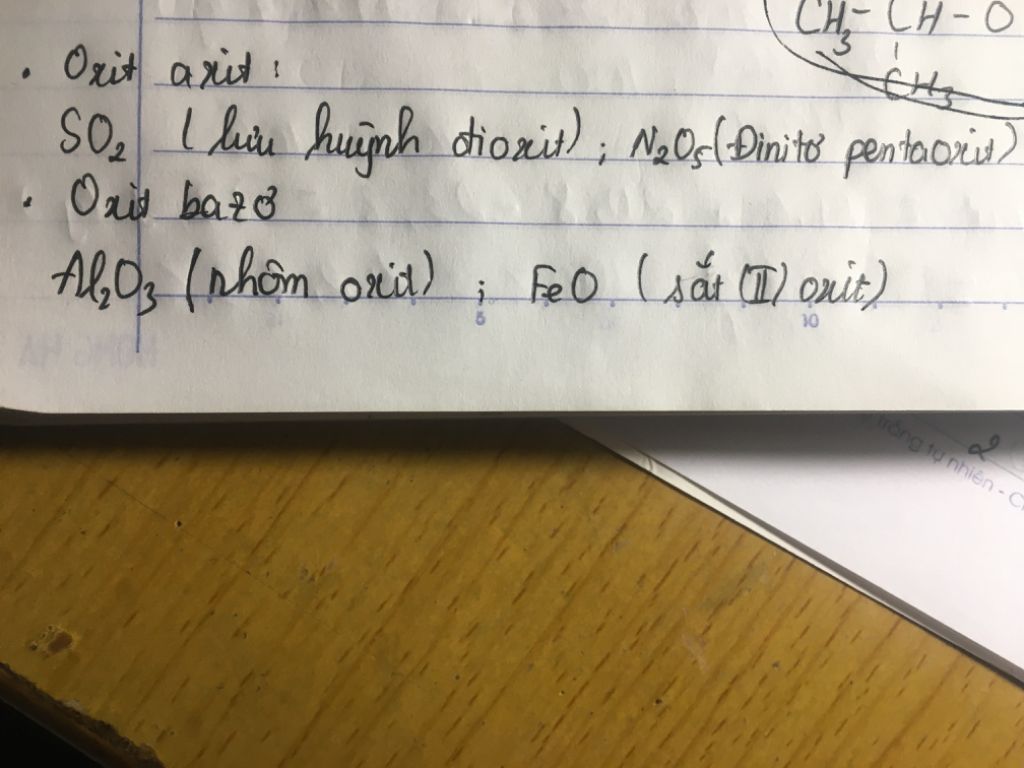 CH₃ - CH - O
CH₃
• Oxit axit :
SO₂ (lưu huỳnh đioxit) ; N₂O₅ (Đinitơ pentaoxit)
• Oxit bazơ
Al₂O₃ (nhôm oxit) ; FeO (sắt (II) oxit)
5 10
trắng tự nhiên - C
2